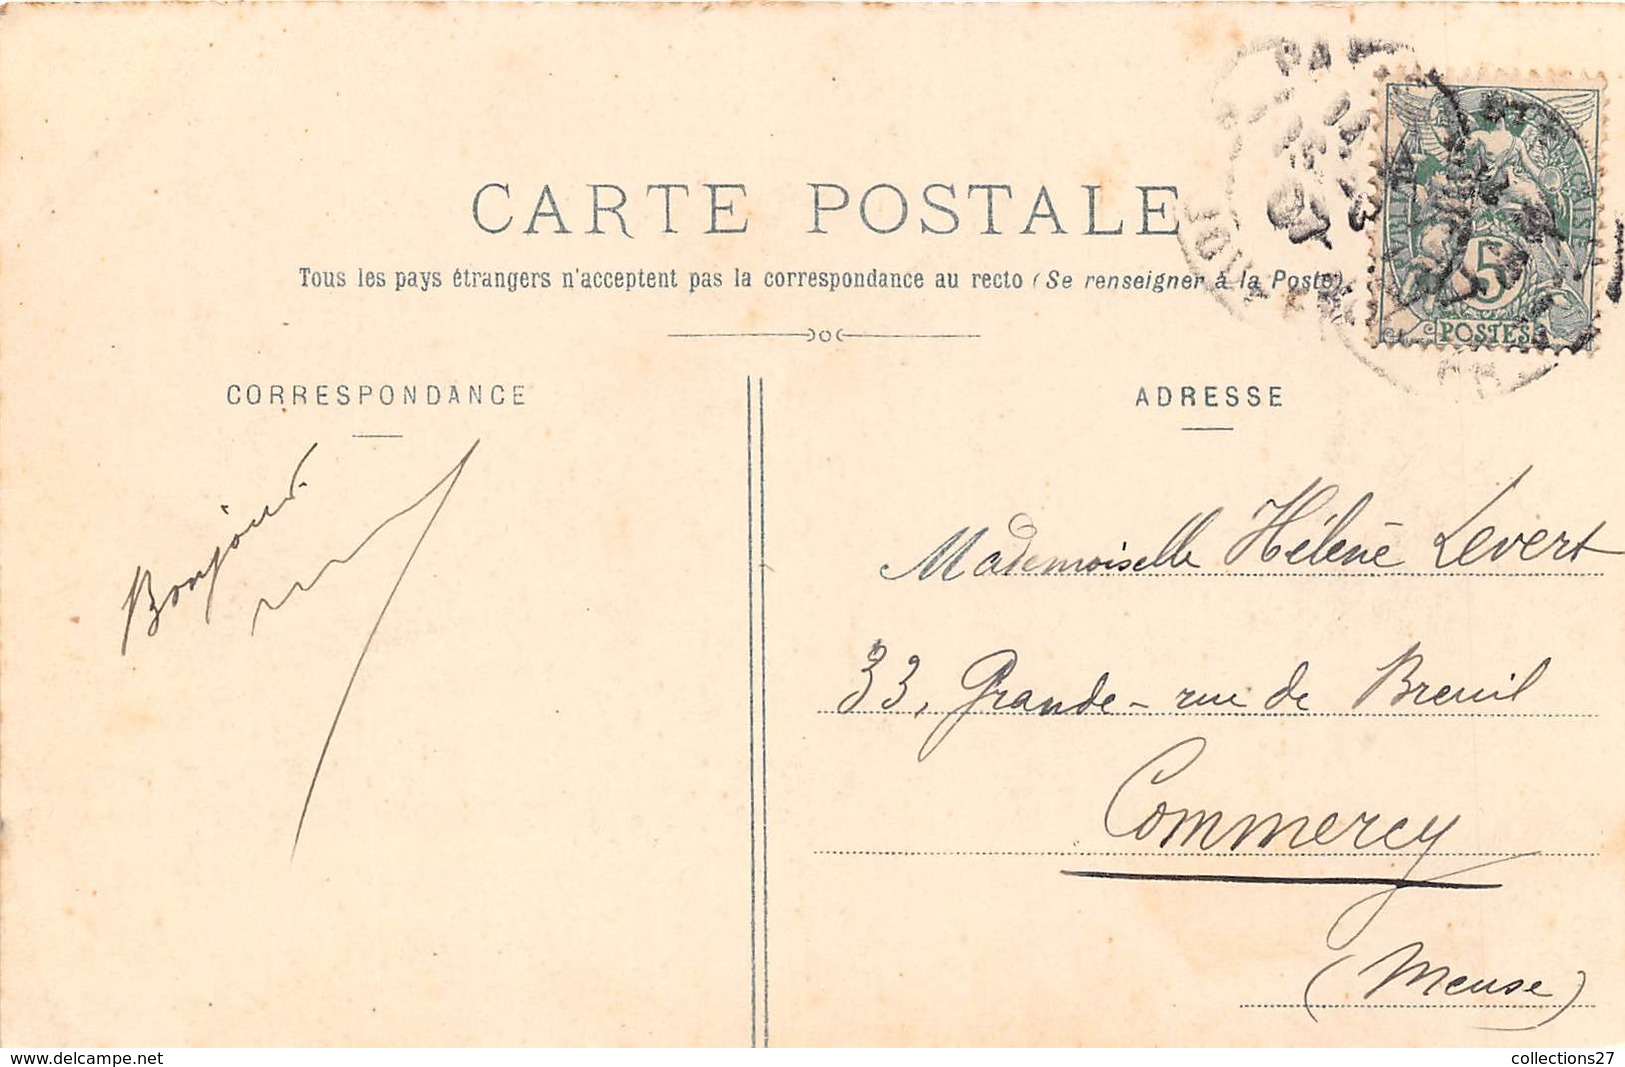 CARTE POSTALE
Tous les pays étrangers n'acceptent pas la correspondance au recto (Se renseigner à la Poste)
CORRESPONDANCE
ADRESSE
Bonjour.
Mademoiselle Hélène Levert
33, Grande-rue de Breuil
Commercy
(Meuse)
5
POSTES
www.delcampe.net
collections27